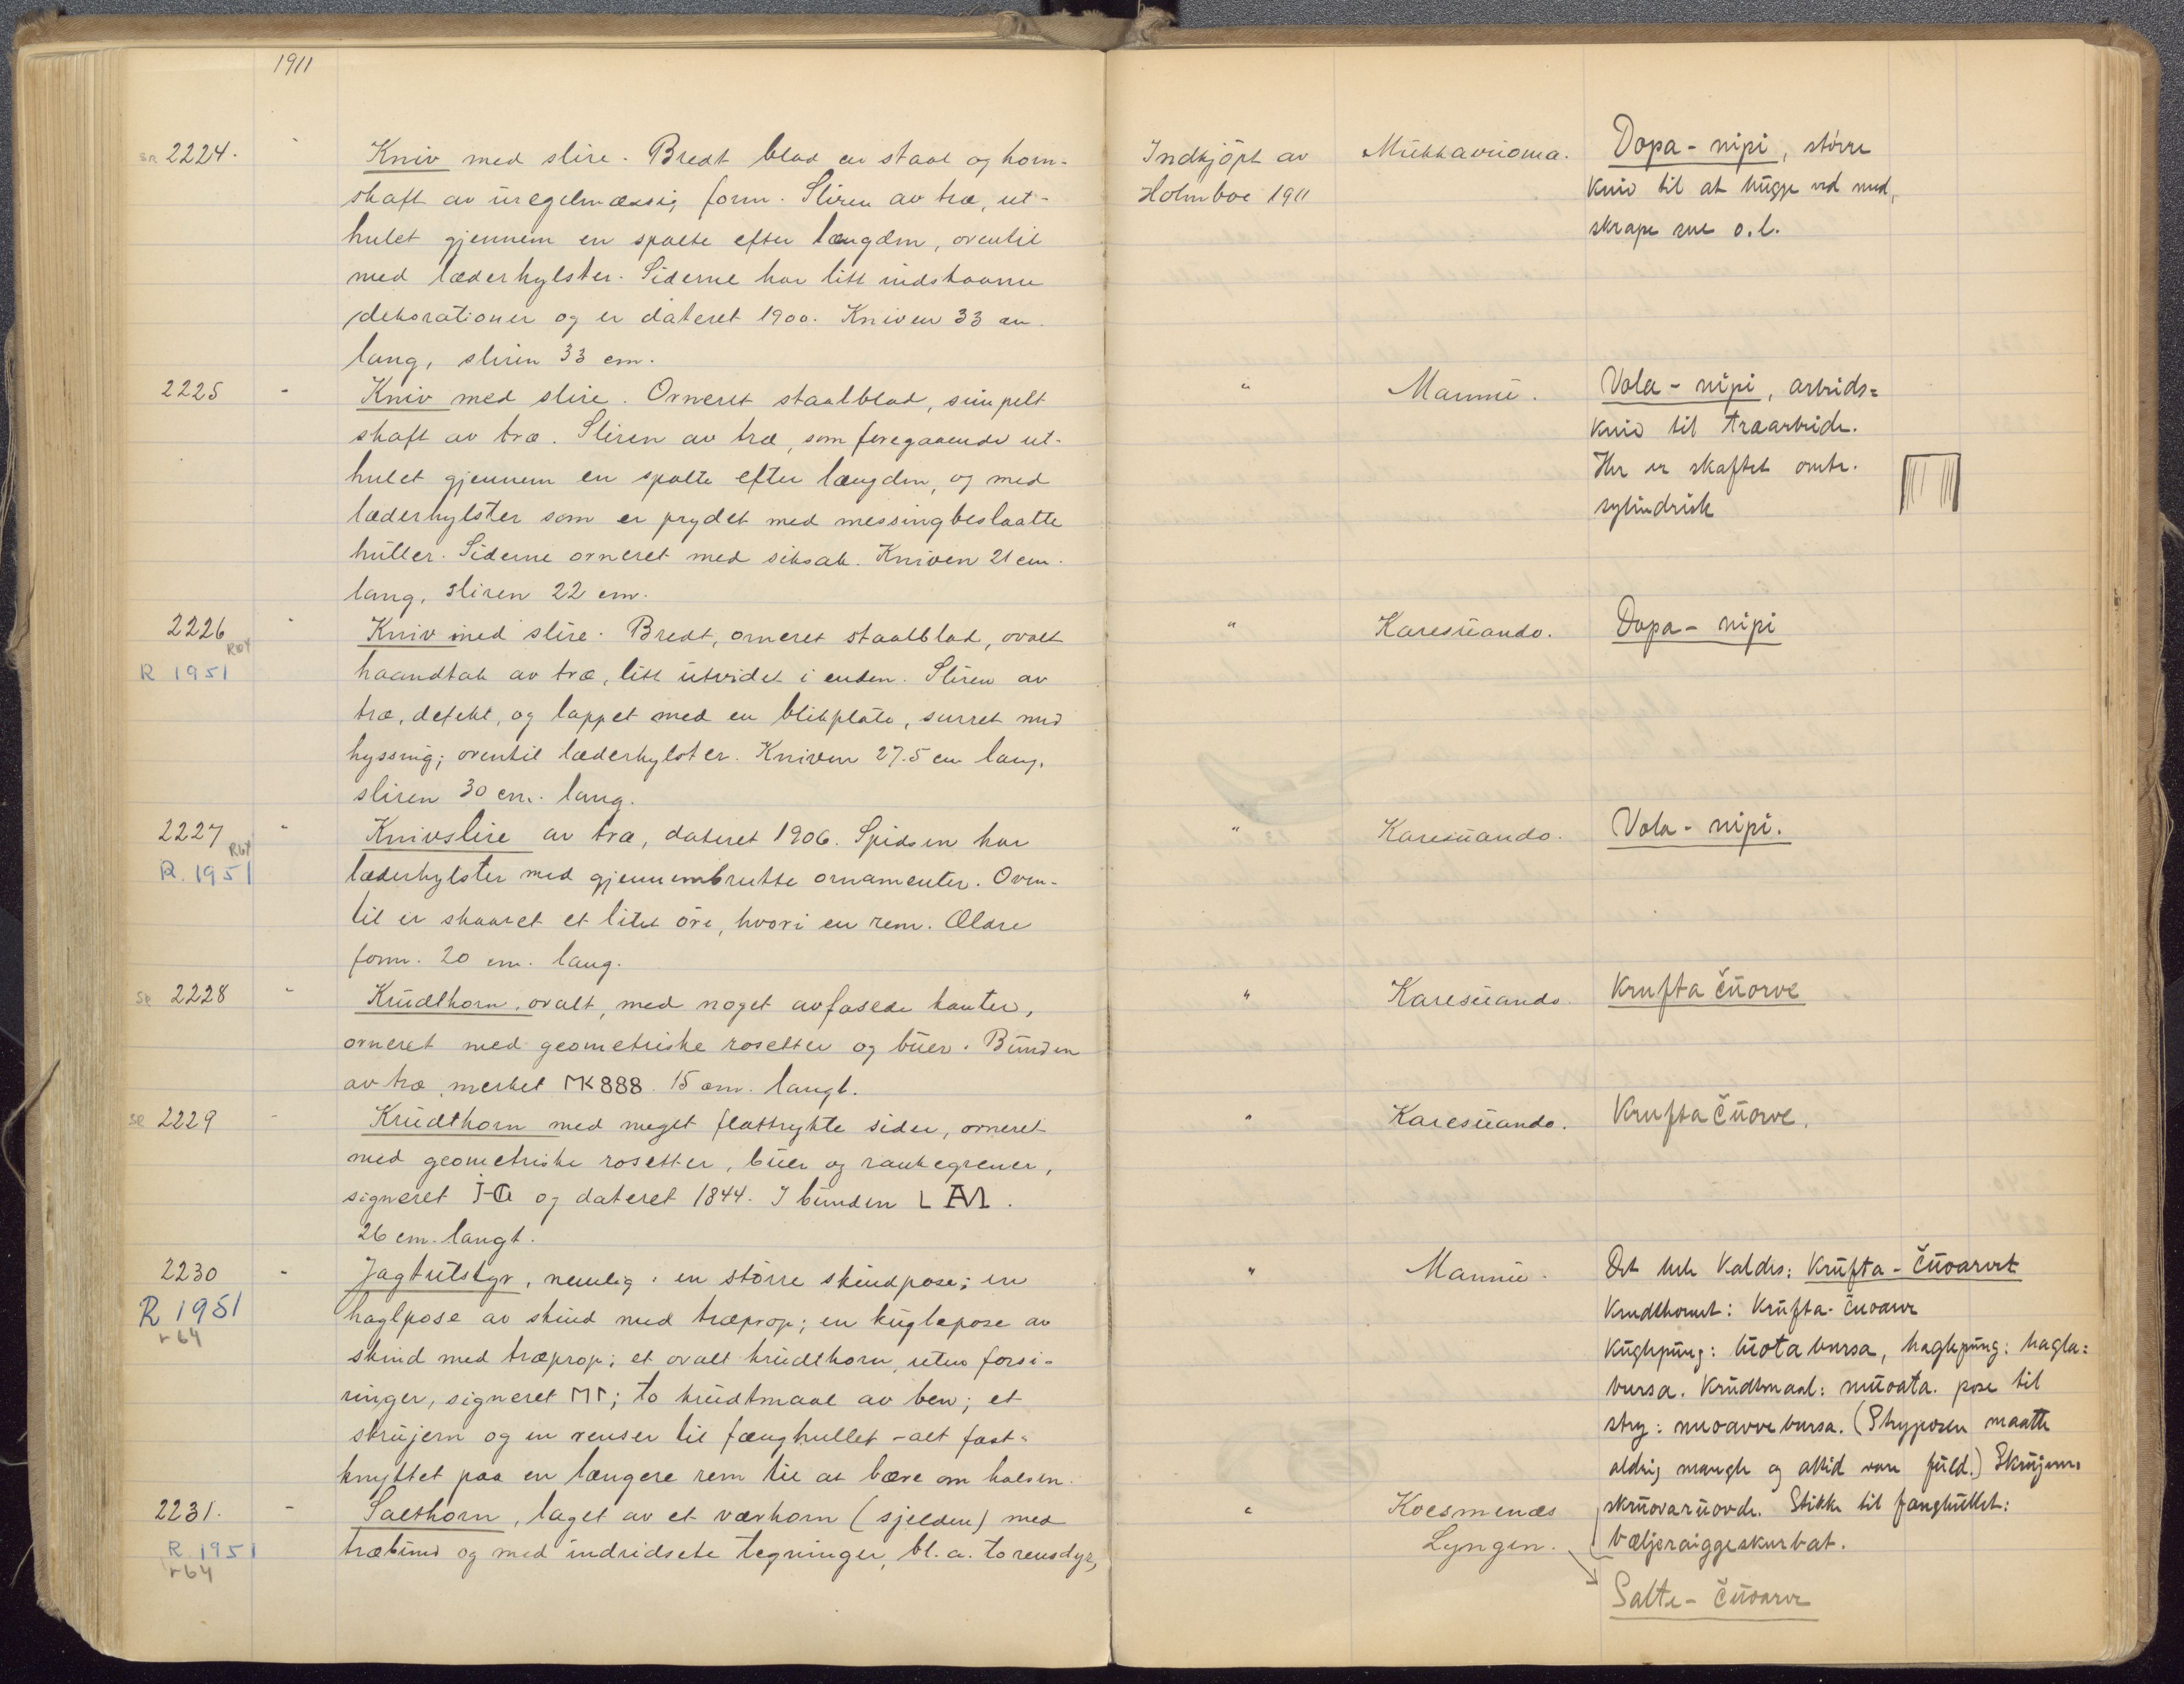 1911
2224. " Kniv med slire. Bredt blad av staal og horn-
skaft av uregelmæssig form. Sliren av træ, ut-
hulet gjennem en spalte efter længden, oventil
med læderhylster. Siderne har litt indskaarne
dekorationer og er dateret 1900. Kniven 33 cm.
lang, sliren 33 cm.
2225 " Kniv med slire. Orneret staalblad, simpelt
skaft av træ. Sliren av træ, som foregaaende ut-
hulet gjennem en spalte efter længden, og med
læderhylster som er prydet med messingbeslaatte
huller. Siderne orneret med siksak. Kniven 21 cm.
lang, sliren 22 cm.
2226 " Kniv med slire. Bredt, orneret staalblad, ovalt
R 1951 haandtak av træ, litt utvidet i enden. Sliren av
træ, defekt, og lappet med en blikplate, surret med
hyssing; oventil læderhylster. Kniven 27.5 cm lang,
sliren 30 cm. lang.
2227 " Knivslire av træ, dateret 1906. Spidsen har
R. 1951 læderhylster med gjennembrutte ornamenter. Oven-
til er skaaret et litet öre, hvori en rem. Ældre
form. 20 cm. lang.
2228 " Krudthorn, ovalt, med noget avfasede kanter,
orneret med geometriske rosetter og buer. Bunden
av træ, merket MK888. 15 cm. langt.
2229 " Krudthorn med meget flattrykte sider, orneret
med geometriske rosetter, buer og rankegrener,
signeret og dateret 1844. I bunden L AM.
26 cm. langt.
2230 " Jagtutstyr, nemlig: en större skindpose; en
R 1951 haglpose av skind med træprop; en kuglepose av
r 64 skind med træprop; et ovalt krudthorn, uten forsi-
ringer, signeret; to krudtmaal av ben; et
skrujern og en renser til fænghullet - alt fast-
knyttet paa en længere rem til at bære om halsen.
2231. " Salthorn, laget av et værhorn (sjelden) med
R 1951 træbund og med indridsete tegninger, bl. a. to rensdyr,
r 64
Indkjöpt av Mukkavuoma. Dopa-nipi, större
Holmboe 1911 kniv til at hugge ved med,
skrape sne o.l.
" Mannu. Vola-nipi, arbeids=
kniv til træarbeide.
Her er skaftet omtr.
sylindrisk
" Karesuando. Dopa-nipi
" Karesuando. Vola-nipi.
" Karesuando. Krufta čuorve
" Karesuando. Krufta čuorve.
" Mannu. Det hele kaldes: Krufta-čuoarvet
Krudthornet: Krufta-čuoarve
Kuglepung: luota bursa, haglepung: hagla=
bursa. Krudtmaal: muoata. pose til
stry: muoavve bursa. (Stryposen maatte
aldrig mangle og altid være fuld.) Skrujern:
" Koesmenæs skruovaruovde. Stikke til fænghullet:
Lyngen. bæljeraiggeskurbat.
Salte-čuoarve